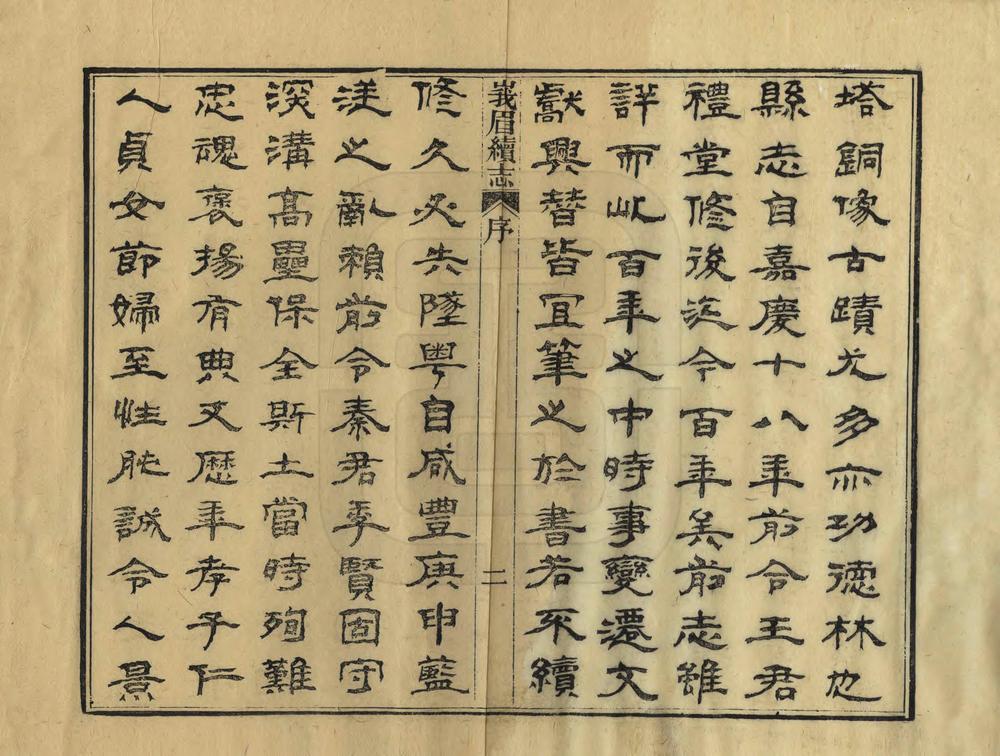 塔銅像古蹟尤多亦功德林也
縣志自嘉慶十八年前令王君
禮堂修後迄今百年矣前志雖
詳而此百年之中時事變遷文
獻興替皆宜筆之於書若不續
峩眉續志 序 二
修久必失墜粵自咸豐庚申藍
逆之亂賴前令秦君季賢固守
深溝高壘保全斯土當時殉難
忠魂褒揚有典又歷年孝子仁
人貞女節婦至性肫誠令人景